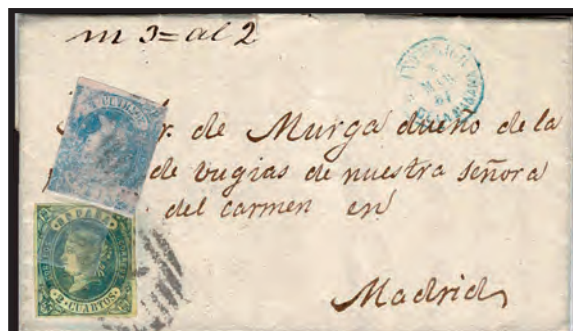 m 3= al 2
r. de Murga dueño de la
de vugias de nuestra señora
del carmen en
Madrid
ESPAÑA
2 CUARTOS